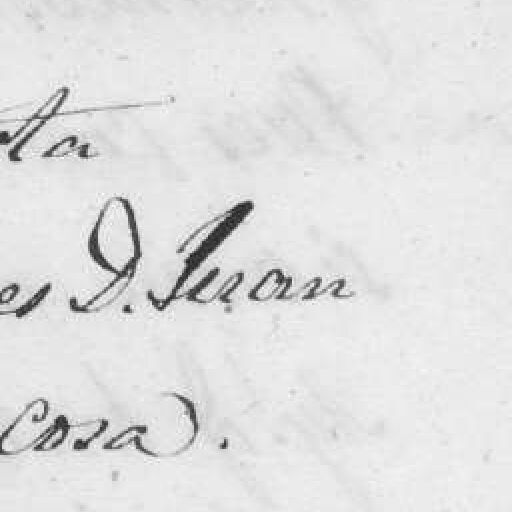 sta
es D. Juan
cosa.